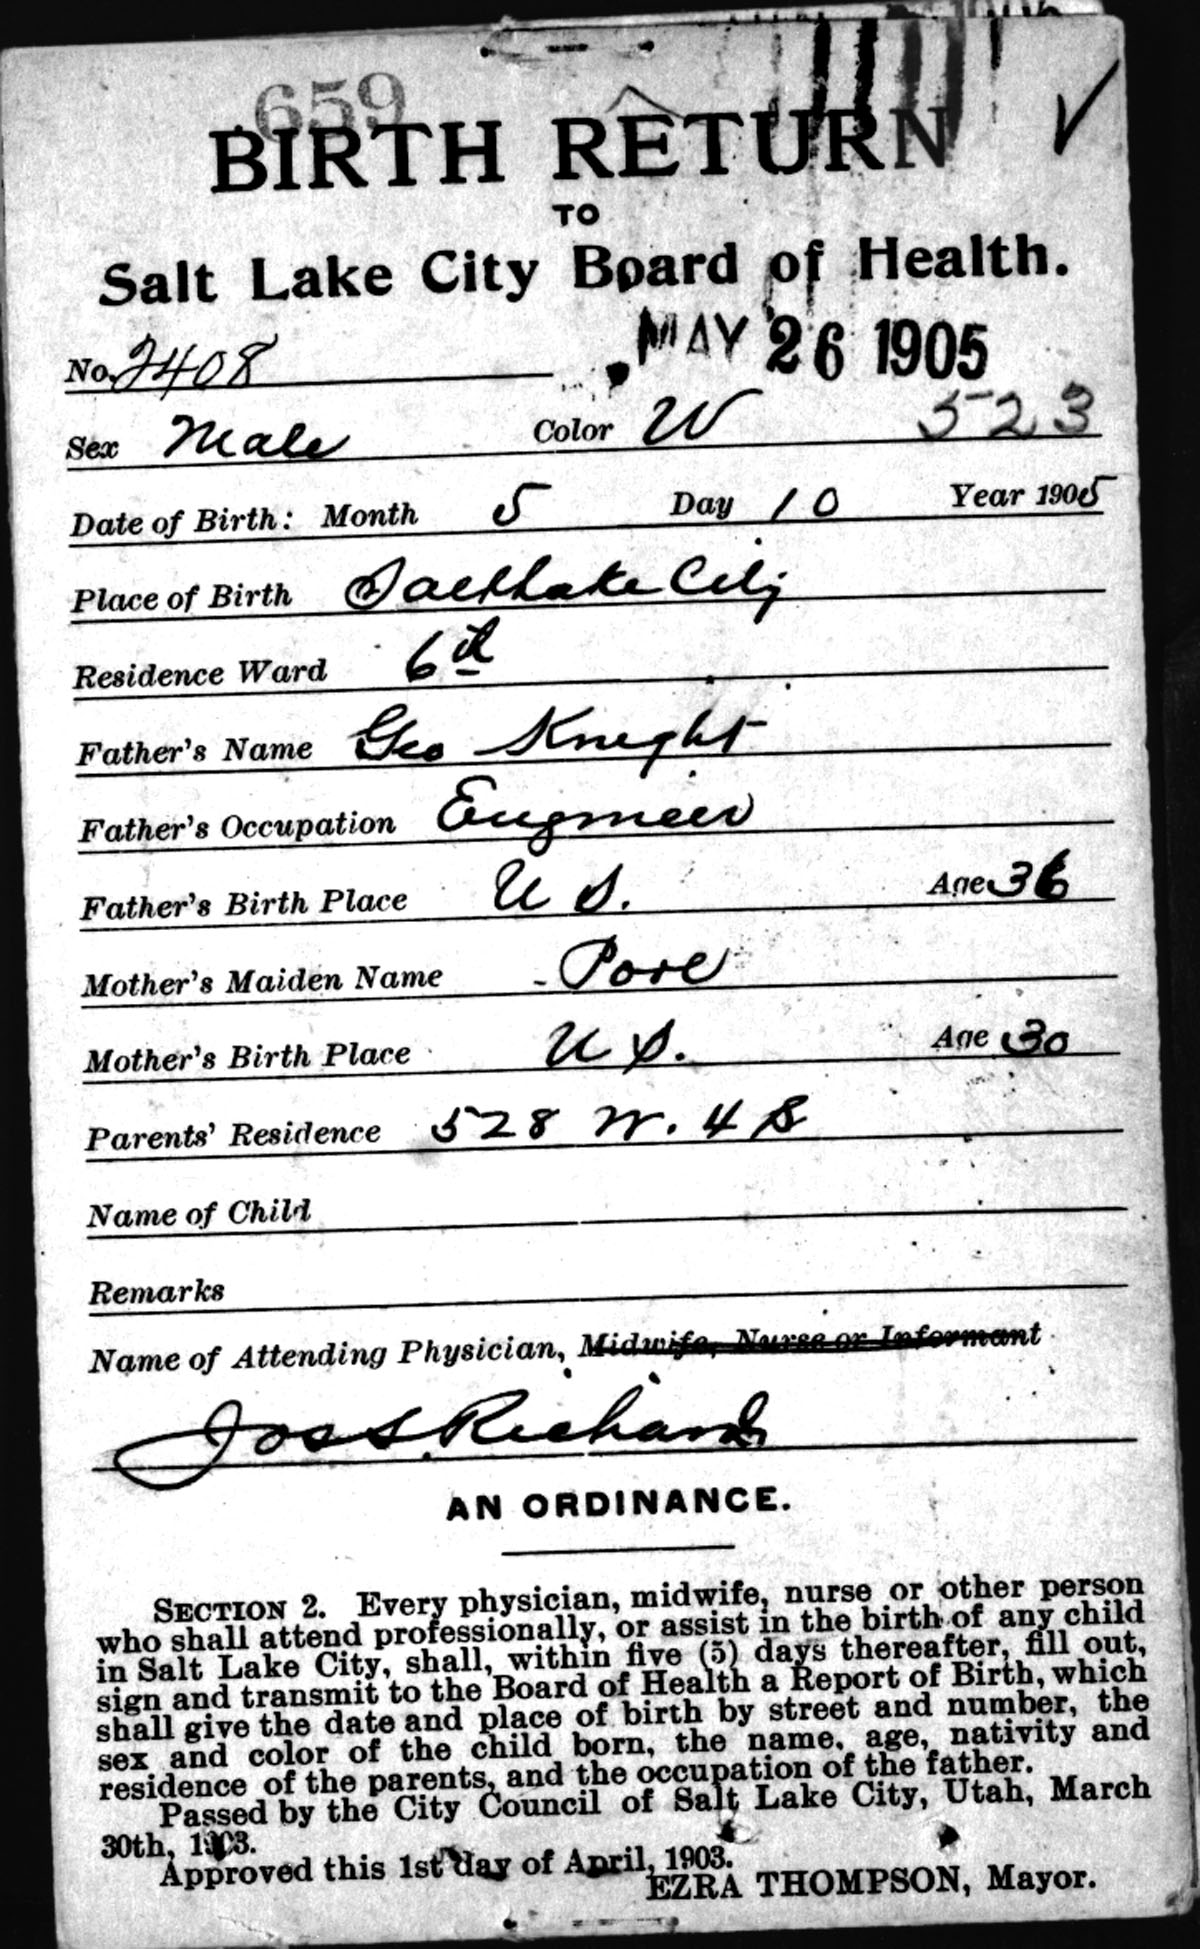 659
BIRTH RETURN
TO
Salt Lake City Board of Health.
MAY 26 1905
No. 2408
523
Sex Male Color W
Date of Birth: Month 5 Day 10 Year 1905
Place of Birth Salt Lake City
Residence Ward 6th
Father's Name Geo Knight
Father's Occupation Engineer
Father's Birth Place U S. Age 36
Mother's Maiden Name - Pore
Mother's Birth Place U S. Age 30
Parents' Residence 528 W. 4 S
Name of Child
Remarks
Name of Attending Physician, Midwife, Nurse or Informant
Jos S. Richards
AN ORDINANCE.
SECTION 2. Every physician, midwife, nurse or other person
who shall attend professionally, or assist in the birth of any child
in Salt Lake City, shall, within five (5) days thereafter, fill out,
sign and transmit to the Board of Health a Report of Birth, which
shall give the date and place of birth by street and number, the
sex and color of the child born, the name, age, nativity and
residence of the parents, and the occupation of the father.
Passed by the City Council of Salt Lake City, Utah, March
30th, 1903.
Approved this 1st day of April, 1903.
EZRA THOMPSON, Mayor.